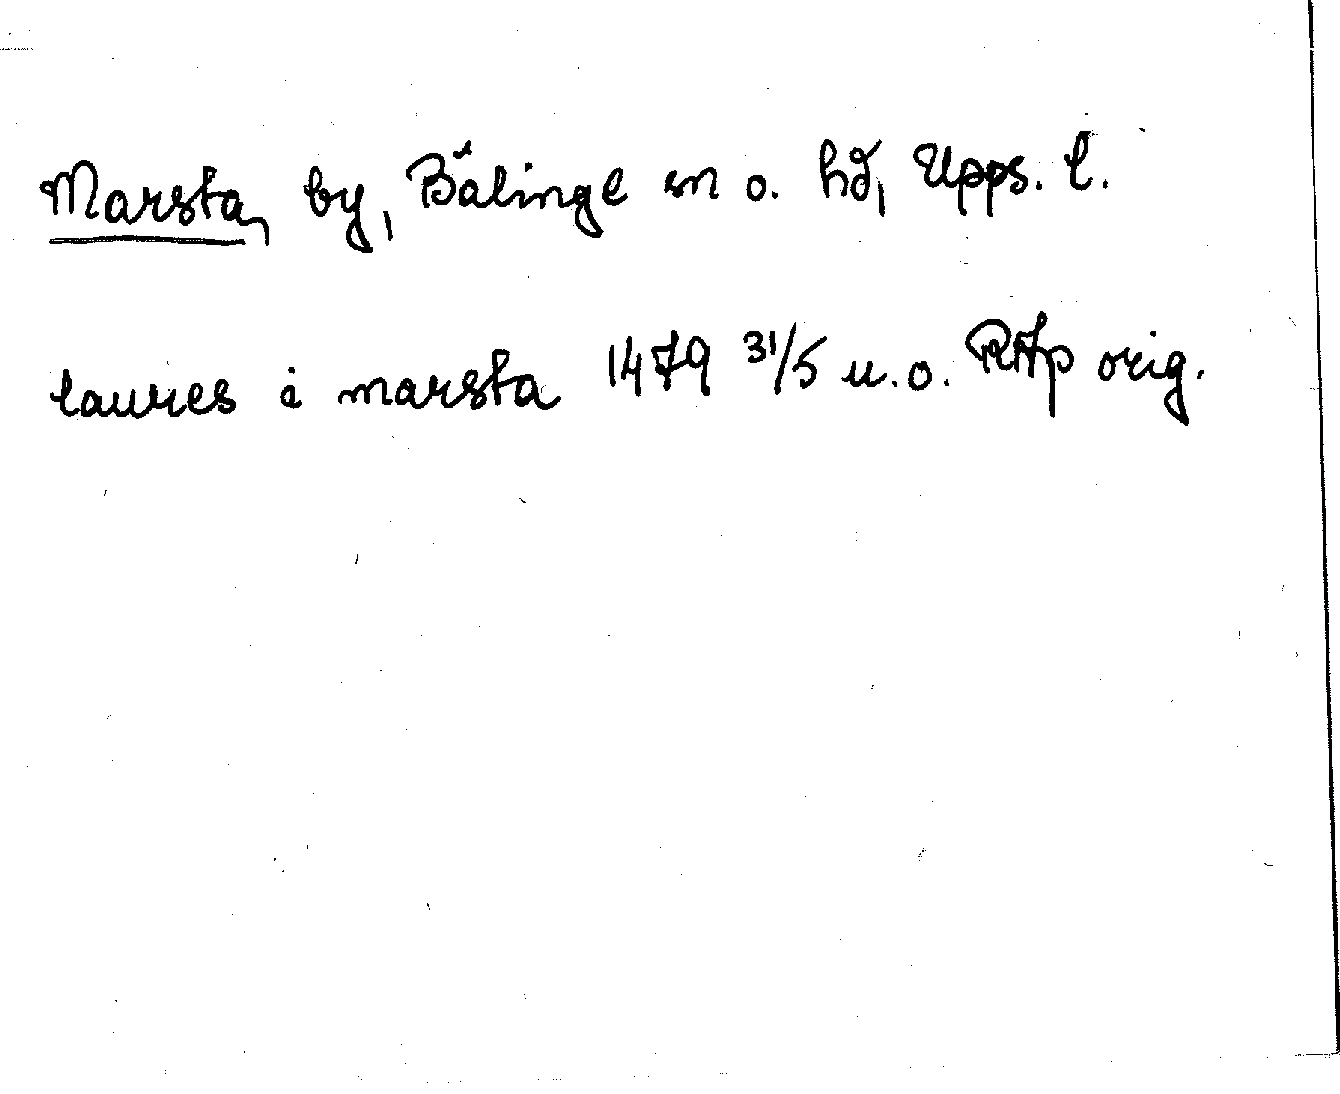 Marsta, by, Bälinge sn o. hd, Upps. l.
laures i marsta 1479 31/5 u.o. RAp orig.